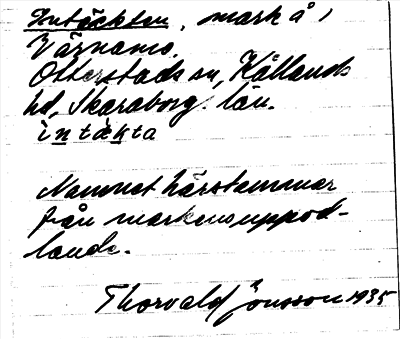 Intäckten, mark å i
Värnamo,
Otterstads sn, Kållands
hd, Skaraborgs län.
ìntäkta
Namnet härstammar
från markens uppod-
lande.
Thorvald Jonsson 1935